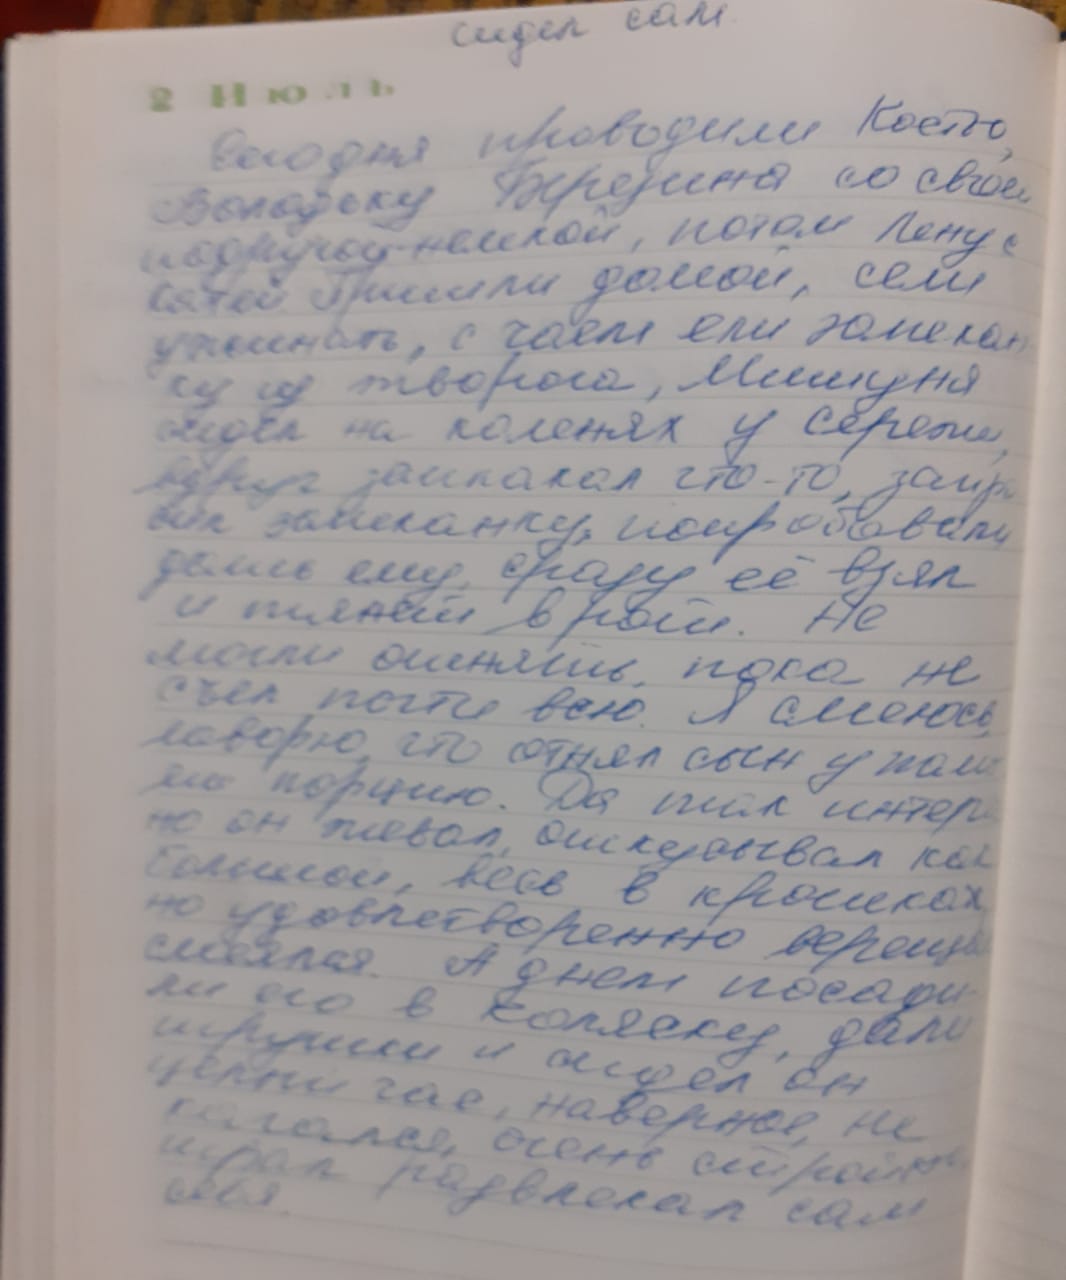 сидел сам.
2 Июль
Сегодня проводили Костю,
Володьку Березина со своей
подругой-немкой, потом Лену с
Катей. Пришли домой, сели
ужинать, с чаем ели запекан
ку из творога, Мишуня
сидел на коленях у Сережи,
вдруг заплакал что-то,
запеканку, попробовали
дать ему, сразу её взял
и тянет в рот. Не
могли отнять, пока не
съел почти всю. Я смеюсь,
говорю, что отнял сын у папы
его порцию. Да так интерес
но он жевал, откусывал как
большой, весь в крошках,
но удовлетворенно
смеялся. А днем посади-
ли его в коляску, дали
игрушки и сидел он
целый час, наверное, не
качался, очень
играл развлекал сам
себя.